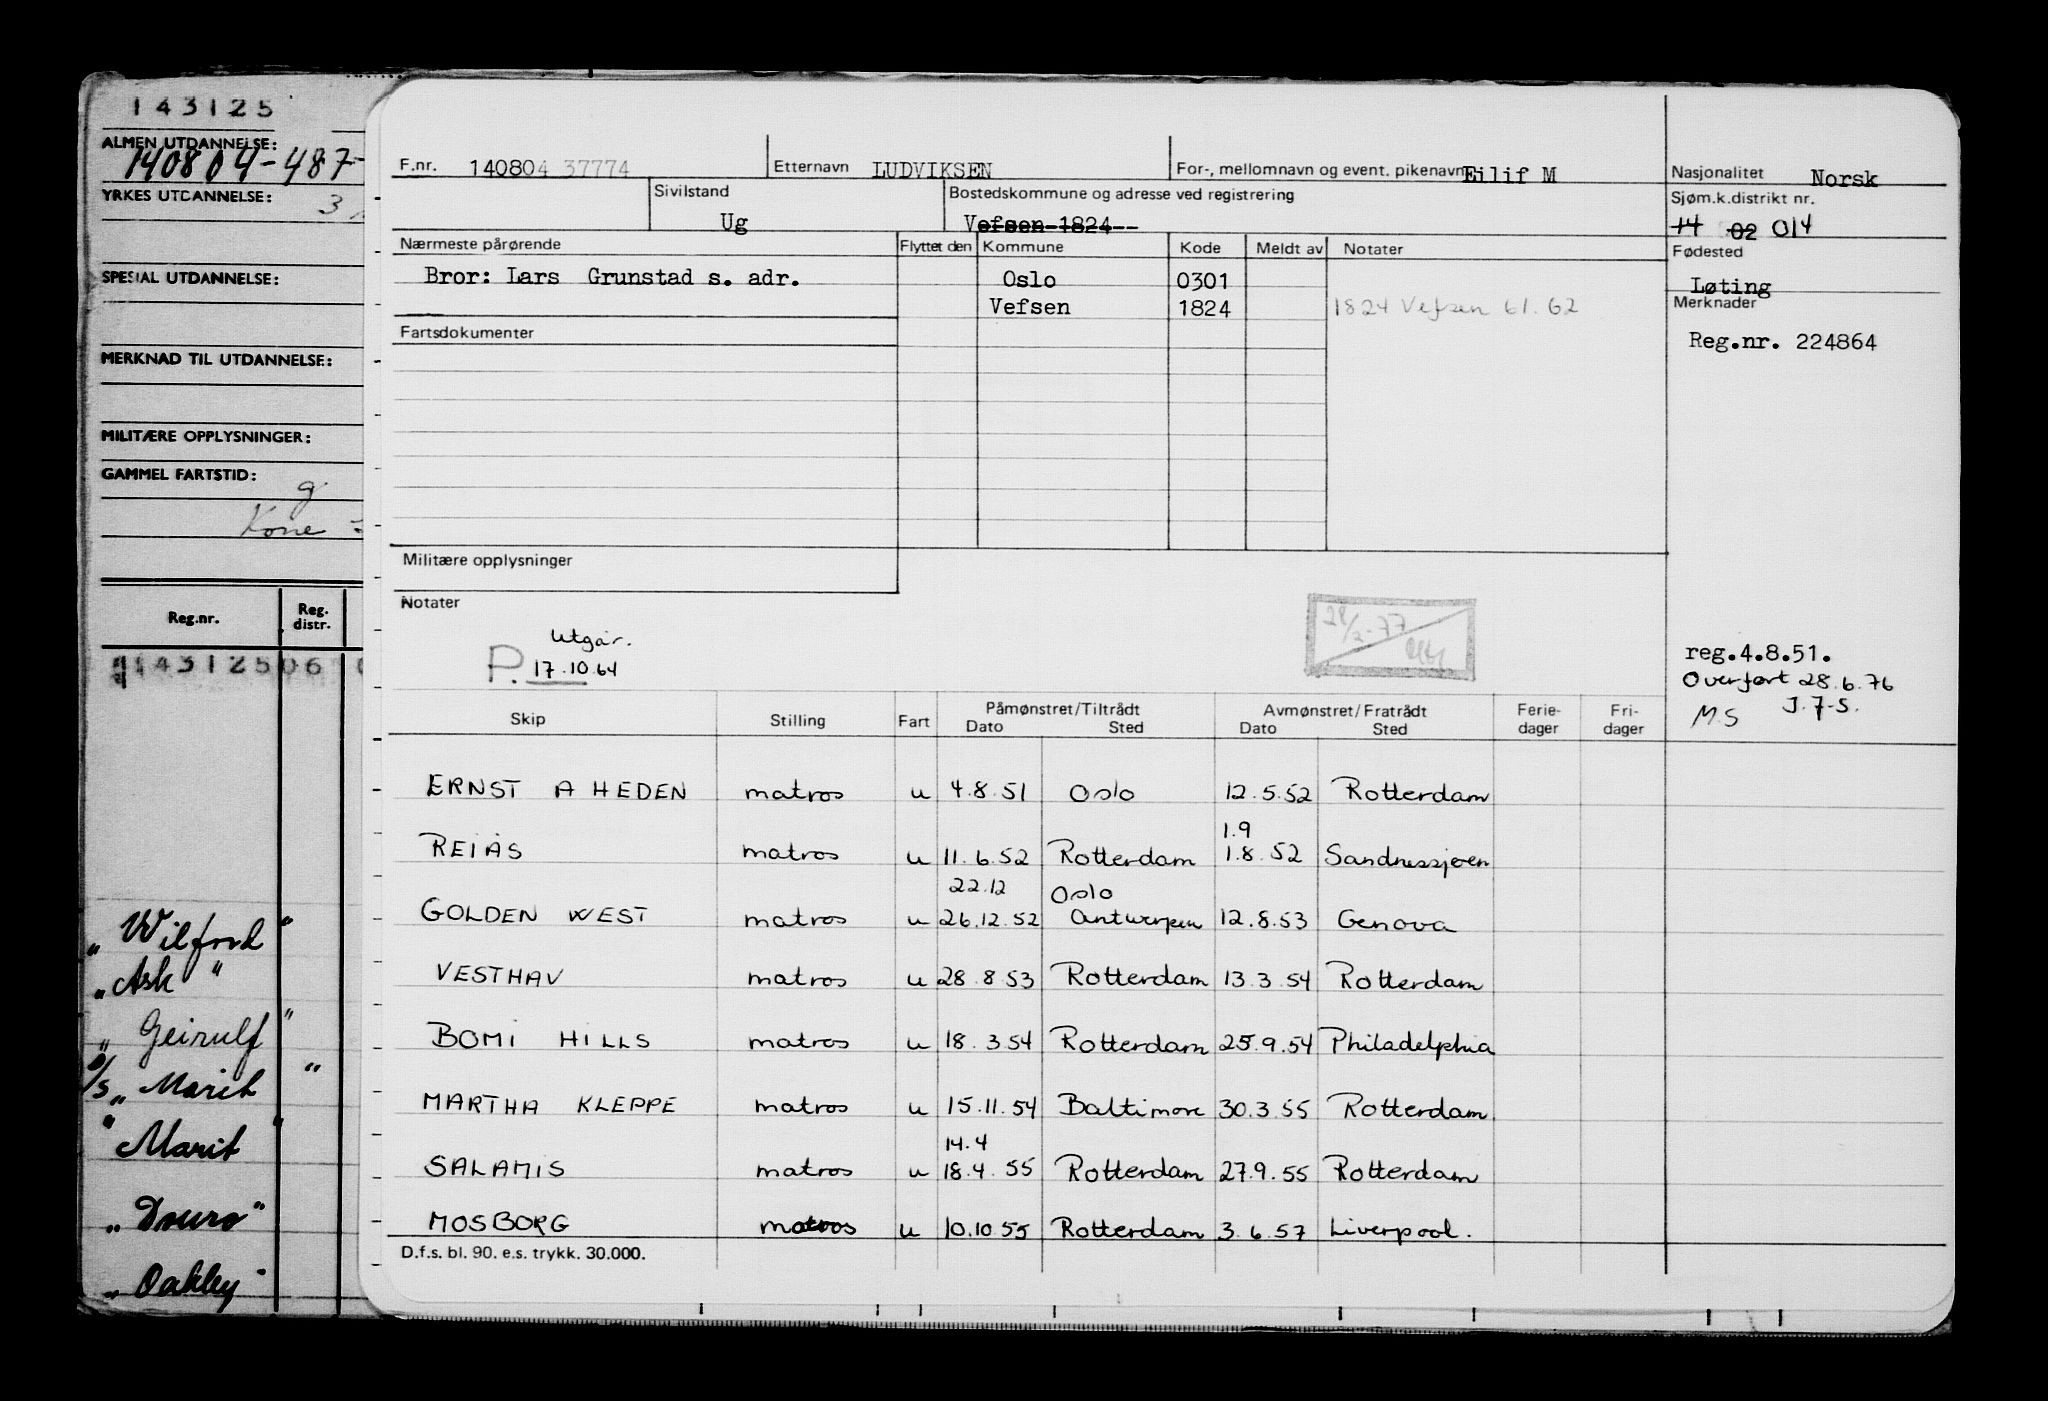 143125
ALMEN UTDANNELSE:
140804-487-
YRKES UTDANNELSE:
3
SPESIAL UTDANNELSE:
MERKNAD TIL UTDANNELSE:
MILITÆRE OPPLYSNINGER:
GAMMEL FARTSTID:
g
Kone =
Reg.nr.
Reg. distr.
14312506
"Wilford"
"Ask"
"Geirulf"
D/S "Marit"
"Marit"
"Douro"
"Oakley"
F.nr. 140804 37774
Etternavn LUDVIKSEN
For-, mellomnavn og event. pikenavn Eilif M
Nasjonalitet Norsk
Sivilstand Ug
Bostedskommune og adresse ved registrering
Vefsen 1824--
Sjøm.k.distrikt nr.
14 02 014
Nærmeste pårørende
Flyttet den Kommune Kode Meldt av Notater
Fødested
Løting
Bror: Lars Grunstad s. adr.
Oslo 0301
Vefsen 1824 1824 Vefsen 61.62
Merknader
Reg.nr. 224864
Fartsdokumenter
Militære opplysninger
Notater
Utgår.
P. 17.10.64
28/2-77
reg.4.8.51.
Overført 28.6.76
J.7-S.
M.S
Skip Stilling Fart Påmønstret/Tiltrådt Dato Sted Avmønstret/Fratrådt Dato Sted Ferie-dager Fri-dager
ERNST A HEDEN matros u 4.8.51 Oslo 12.5.52 Rotterdam
1.9
REIÅS matros u 11.6.52 Rotterdam 1.8.52 Sandnessjøen
22.12 Oslo
GOLDEN WEST matros u 26.12.52 Antwerpen 12.8.53 Genova
VESTHAV matros u 28.8.53 Rotterdam 13.3.54 Rotterdam
BOMI HILLS matros u 18.3.54 Rotterdam 25.9.54 Philadelphia
MARTHA KLEPPE matros u 15.11.54 Baltimore 30.3.55 Rotterdam
14.4
SALAMIS matros u 18.4.55 Rotterdam 27.9.55 Rotterdam
MOSBORG matros u 10.10.55 Rotterdam 3.6.57 Liverpool.
D.f.s. bl. 90. e.s. trykk. 30.000.